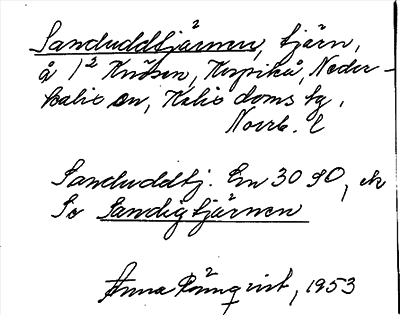 Sanduddtjärnen, tjärn,
å 1² Knösen, Korpikå, Neder-
kalix sn, Kalix doms tg,
Norrb. l
Sanduddtj. En 30 SO, ek
Se Sandigtjärnen
Anna Rönnqvist, 1953